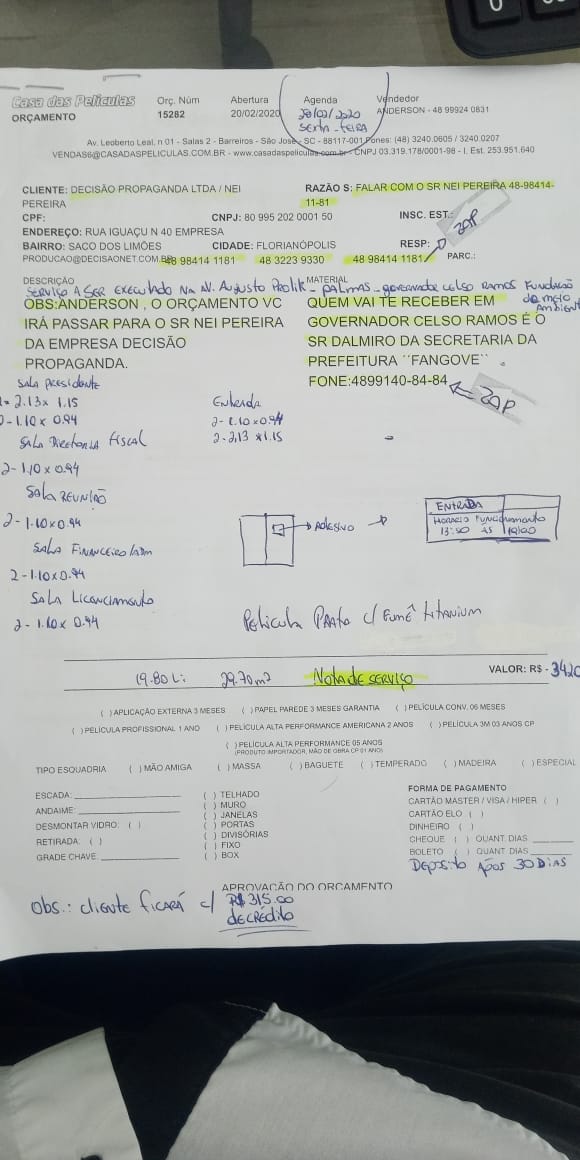 0
Casa das Películas Orç. Núm Abertura Agenda Vendedor
ORÇAMENTO 15282 20/02/2020 28/02/2020 ANDERSON - 48 99924 0831
sexta-feira
Av. Leoberto Leal, n.01 - Salas 2 - Barreiros - São José - SC - 88117-001 Fones: (48) 3240.0605 / 3240.0207
VENDAS6@CASADASPELICULAS.COM.BR - www.casadaspeliculas.com.br - CNPJ 03.319.178/0001-98 - I. Est. 253.951.640
CLIENTE: DECISÃO PROPAGANDA LTDA / NEI PEREIRA RAZÃO S: FALAR COM O SR NEI PEREIRA 48-98414-11-81
CPF: CNPJ: 80 995 202 0001 50 INSC. EST.:
ENDEREÇO: RUA IGUAÇU N 40 EMPRESA ZAP
BAIRRO: SACO DOS LIMÕES CIDADE: FLORIANÓPOLIS RESP:
PRODUCAO@DECISAONET.COM.BR 48 98414 1181 48 3223 9330 48 98414 1181 PARC.:
DESCRIÇÃO MATERIAL
Serviço a ser executado na Av. Augusto Prolik - Palmas - governador Celso Ramos Fundação do meio Ambiente
OBS:ANDERSON , O ORÇAMENTO VC
IRÁ PASSAR PARA O SR NEI PEREIRA
DA EMPRESA DECISÃO
PROPAGANDA.
QUEM VAI TE RECEBER EM
GOVERNADOR CELSO RAMOS É O
SR DALMIRO DA SECRETARIA DA
PREFEITURA ''FANGOVE''
FONE:4899140-84-84
ZAP
Sala Presidente
2.13 x 1.15
1.10 x 0.94
Sala Diretoria Fiscal
2 - 1.10 x 0.94
Sala Reunião
2 - 1.10 x 0.94
Sala Financeiro/Adm
2 - 1.10 x 0.94
Sala Licenciamento
2 - 1.10 x 0.94
Entrada
2 - 1.10 x 0.94
2 - 2,13 x 1.15
Adesivo
ENTRADA
Horário Funcionamento
13:00 às 19:00
Película Prata c/ Fumê titanium
19.80 Li 29.70 m² Nota de serviço VALOR: R$ - 3420
( )APLICAÇÃO EXTERNA 3 MESES ( )PAPEL PAREDE 3 MESES GARANTIA ( )PELÍCULA CONV. 06 MESES
( )PELÍCULA PROFISSIONAL 1 ANO ( )PELÍCULA ALTA PERFORMANCE AMERICANA 2 ANOS ( )PELÍCULA 3M 03 ANOS CP
( )PELÍCULA ALTA PERFORMANCE 05 ANOS
(PRODUTO IMPORTADOR, MÃO DE OBRA CP 01 ANO)
TIPO ESQUADRIA ( )MÃO AMIGA ( )MASSA ( )BAGUETE ( )TEMPERADO ( )MADEIRA ( )ESPECIAL
ESCADA:
ANDAIME:
DESMONTAR VIDRO: ( )
RETIRADA: ( )
GRADE CHAVE:
( ) TELHADO
( ) MURO
( ) JANELAS
( ) PORTAS
( ) DIVISÓRIAS
( ) FIXO
( ) BOX
FORMA DE PAGAMENTO
CARTÃO MASTER / VISA / HIPER ( )
CARTÃO ELO ( )
DINHEIRO ( )
CHEQUE ( ) QUANT. DIAS
BOLETO ( ) QUANT. DIAS
Deposito Após 30 Dias
APROVAÇÃO DO ORÇAMENTO
Obs.: cliente ficará c/ R$315.00
de crédito